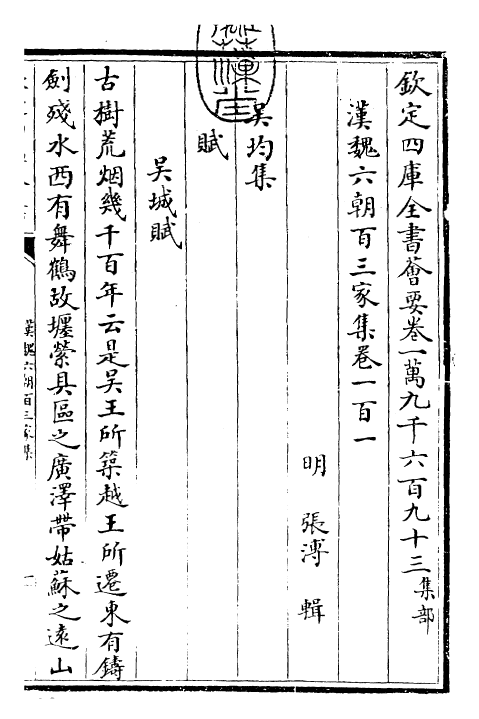 欽定四庫全書薈要卷一萬九千六百九十三集部
漢魏六朝百三家集卷一百一
明 張溥 輯
吳均集
賦
吳城賦
古樹荒烟幾千百年云是吳王所築越王所遷東有鑄
劍殘水西有舞鶴故墟縈具區之廣澤帶姑蘇之遠山
漢魏六朝百三家集
一